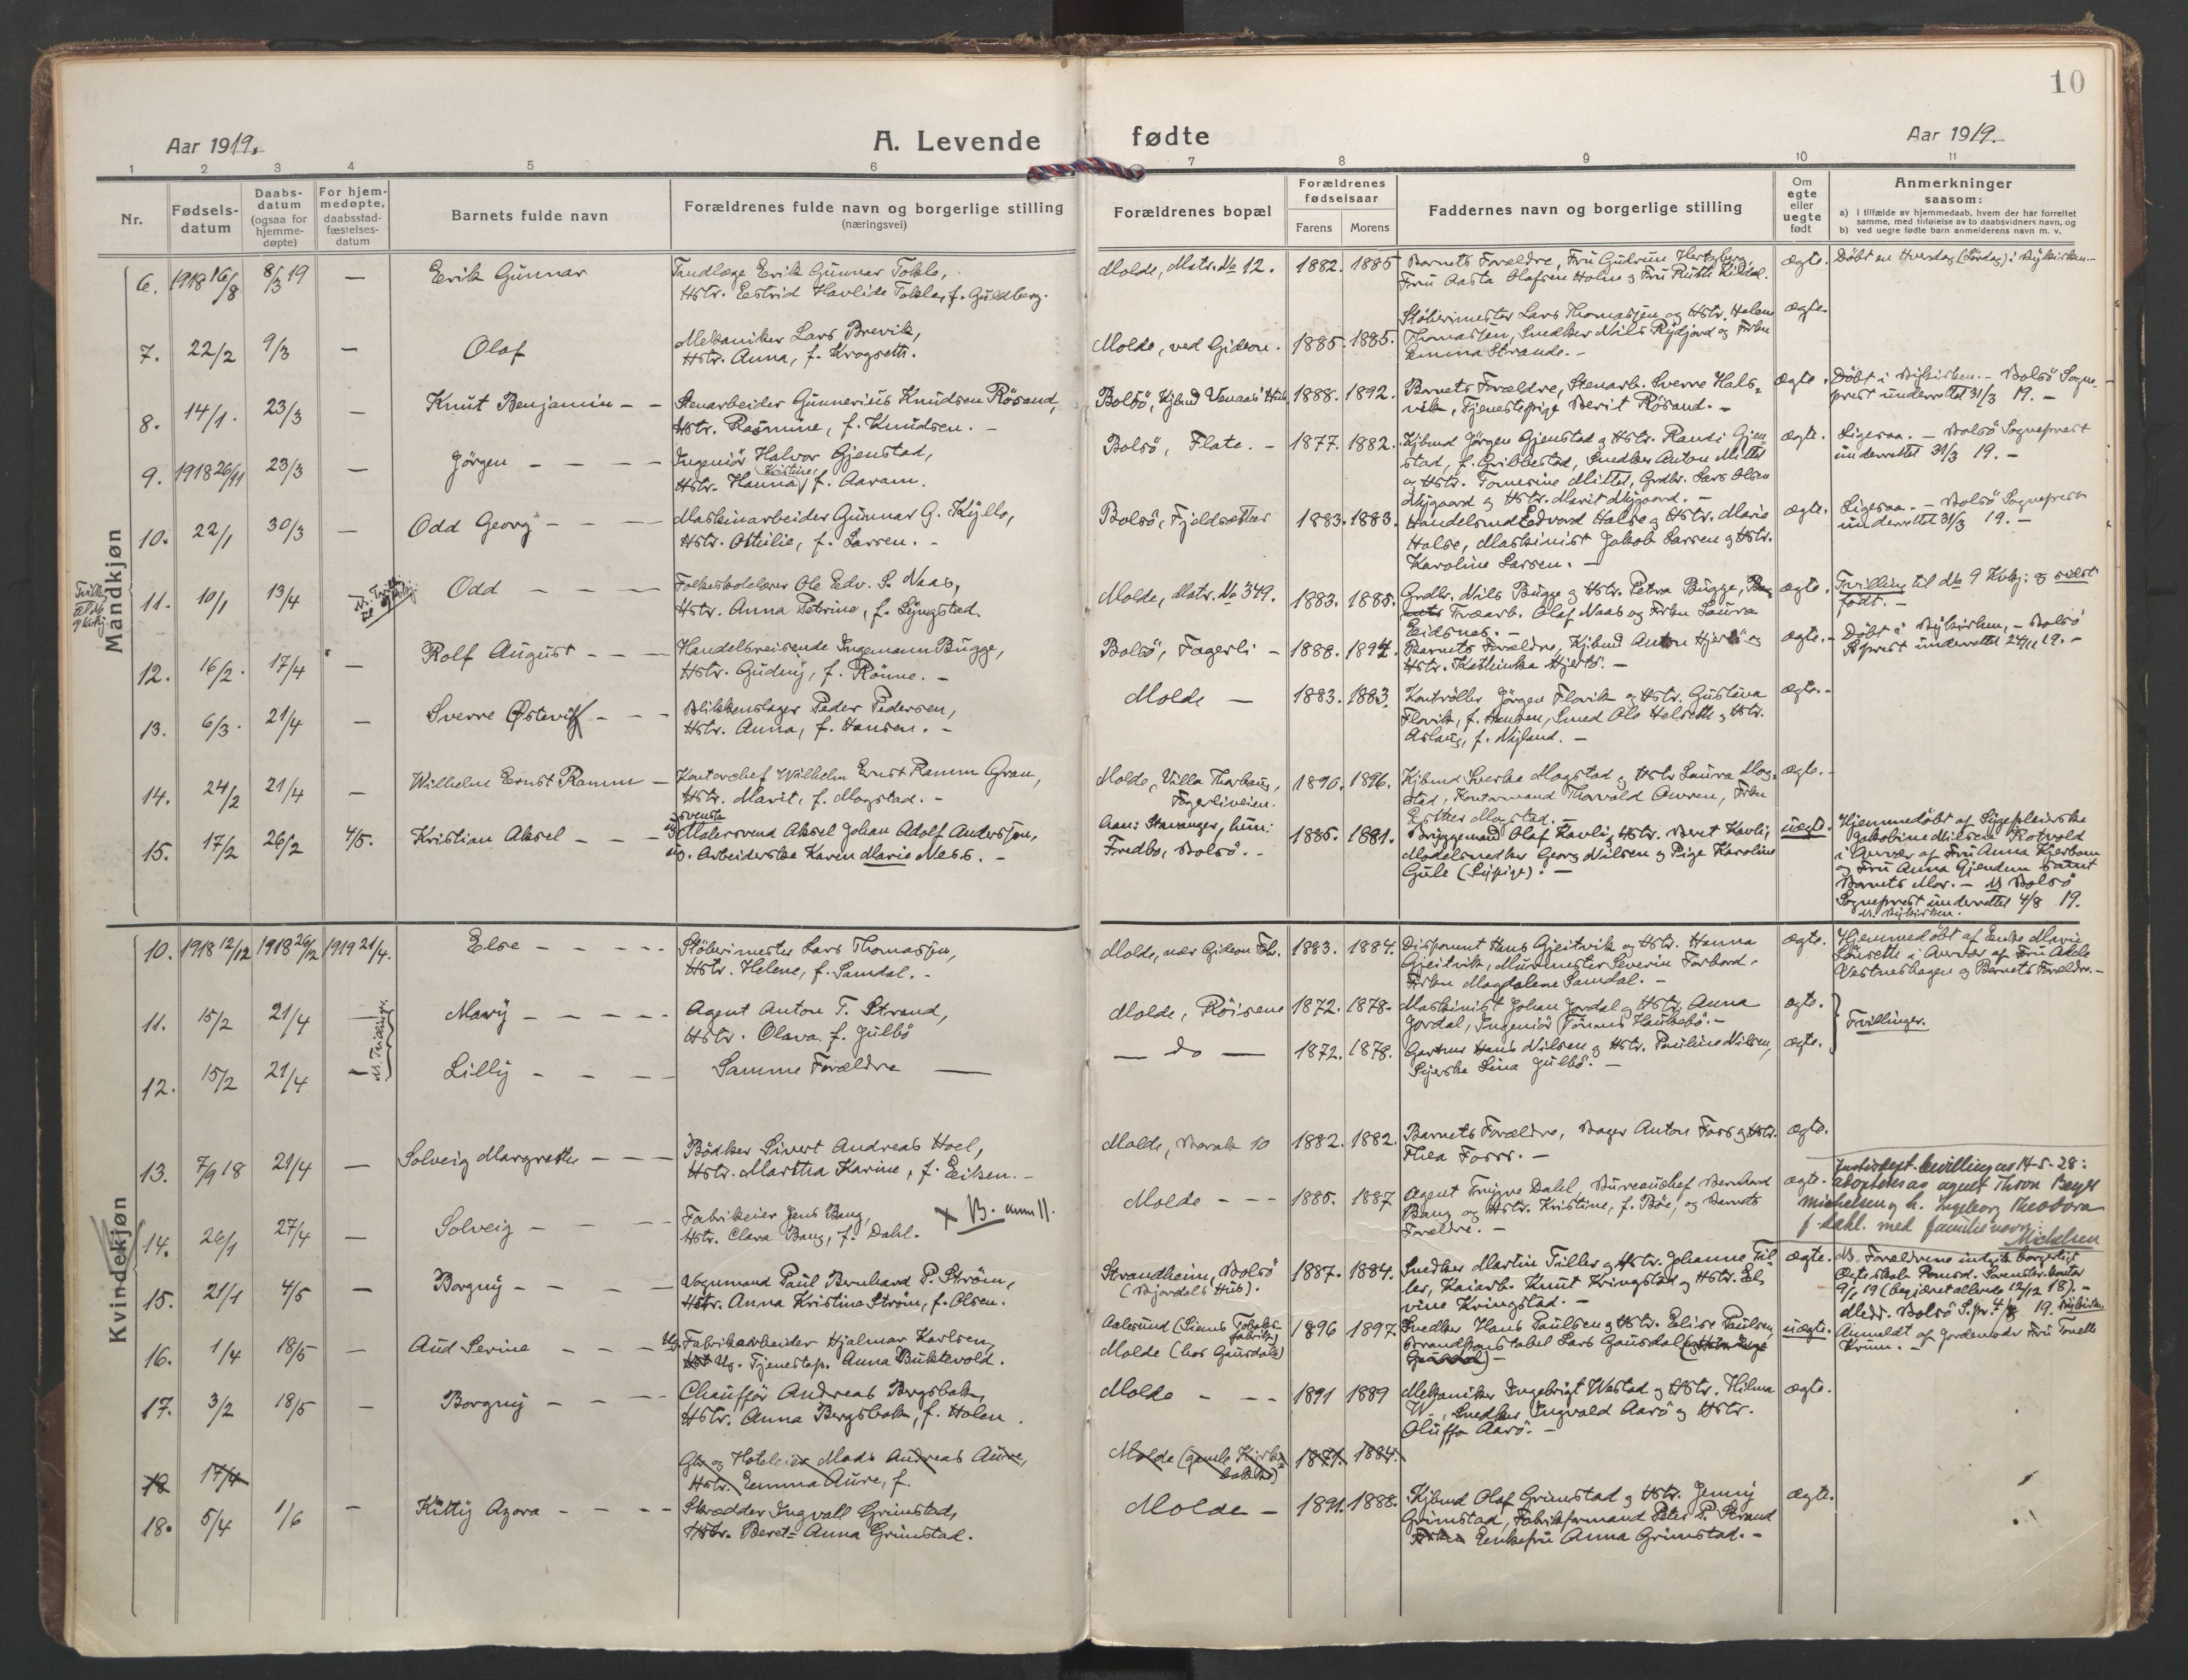 10
Aar 1919.
A. Levende fødte
Aar 1919.
1 2 3 4 5 6 7 8 9 10 11
Nr.
Fødsels-
datum
Daabs-
datum
(ogsaa for
hjemme-
døpte)
For hjem-
medøpte,
daabsstad-
fæstelses-
datum
Barnets fulde navn
Forældrenes fulde navn og borgerlige stilling
(næringsvei)
Forældrenes bopæl
Forældrenes
fødselsaar
Farens Morens
Faddernes navn og borgerlige stilling
Om
egte
eller
uegte
født
Anmerkninger
saasom:
a) i tilfælde av hjemmedaab, hvem der har forrettet
samme, med tilføielse av to daabsvidners navn, og
b) ved uegte fødte barn anmelderens navn m. v.
Mandkjøn
6. 1918 16/8 8/3 19 — Eerik Gunnar
Tandlæge Eerik Gunnar Tokle,
Hstr. Estrid Havlide Tokle, f. Guldberg.
Molde, Matr. No 12. 1882. 1885
Barnets Forældre, Fru Gudrun Hertzberg,
Fru Aasta Olafsen Holm og Fru Ruth Kildal.
ægte. Døbt en Hverdag (Lørdag) i Nykirken.—
7. 22/2 9/3 — Olaf
Mekaniker Lars Brevik,
Hstr. Anna, f. Krogseth.
Molde, ved Gideon. 1885. 1885.
Støberimester Lars Thomassen og Hstr. Helene
Thomassen, Snedker Nils Rydjord og Frkn
Emma Strande. —
ægte.
8. 14/1. 23/3 — Knut Benjamin — —
Stenarbeider Gunnerius Knudsen Rösand,
Hstr. Rasmine, f. Knudsen. —
Bolsö, Kjbmd Venaas' Hus 1888. 1892.
Barnets Forældre, Stenarb. Sverre Hals-
vik, Tjenestepige Berit Rösand. —
ægte. Døbt i Nykirken. — Bolsö Sogne-
prest underrettet 31/3 19. —
9. 1918 26/11 23/3 — Jörgen — — — —
Ingeniör Halvor Gjenstad,
Kristine,
Hstr. Hanna, f. Aaram.
Bolsö, Flate. — 1877. 1882.
Kjbmd Jörgen Gjenstad og Hstr. Randi Gjen-
stad, f. Gribbestad, Snedker Anton Mittet
og Hstr. Tomerine Mittet, Grdbr. Lars Olsen
Mygaard og Hstr. Marit Mygaard. —
ægte. Ligesaa. — Bolsö Sogneprest
underrettet 31/3 19. —
10. 22/1 30/3 — Odd Georg — — —
Maskinarbeider Gunnar G. Kyllo,
Hstr. Othilie, f. Larsen. —
Bolsö, Fjeldsæter 1883. 1883.
Handelsmd Edvard Halse og Hstr. Marie
Halse, Maskinist Jakob Larsen og Hstr.
Karoline Larsen. —
ægte. Ligesaa. — Bolsö Sogneprest
underrettet 31/3 19. —
11. 10/1 13/4 Odd — — —
Folkeskolelærer Ole Edv. S. Naas,
Hstr. Anna Petrine, f. Lyngstad.
Molde, Matr. No 349. 1883. 1885.
Grdbr. Nils Bugge og Hstr. Petra Bugge,
Træarb. Olaf Naas og Frkn Laura
Eidsnes. —
ægte. Tvilling til No 9 Kvkj: og sidst
født. —
12. 16/2. 17/4 — Rolf August — — —
Handelsreisende Ingemann Bugge,
Hstr. Gudny, f. Rönne. —
Bolsö, Fagerli — 1888. 1894.
Barnets Forældre, Kjbmd Anton Hjertö og
Hstr. Kathinka Hjertö. —
ægte. — Døbt i Nykirken, — Bolsö
Sprest underrettet 24/4 19. —
13. 6/3. 21/4 — Sverre Østevik — —
Blikkenslager Peder Pedersen,
Hstr. Anna, f. Hansen. —
Molde — 1883. 1883.
Kontrollör Jörgen Flovik og Hstr. Gustava
Flovik, f. Hansen, Smed Ole Helseth og Hstr.
Aslaug, f. Nyland. —
ægte. —
14. 24/2 21/4 — Wilhelm Ernst Ramm —
Kontorchef Wilhelm Ernst Ramm Gran,
Hstr. Marit, f. Mogstad. —
Molde, Villa Thorhaug,
Fagerliveien. 1890. 1896.
Kjbmd Sverke Mogstad og Hstr Laura Mog-
stad, Kontormand Thorvald Owren, Frkn
Esther Mogstad. —
ægte. —
15. 17/2 26/2 4/5. Kristian Aksel — — —
svensk
Ug. Malersvend Aksel Johan Adolf Andersson,
ug. Arbeiderske Karen Marie Ness. —
han: Stavanger, hun:
Fredbo, Bolsö. — 1885. 1891.
Bryggemand Olaf Kavli, Hstr. Beret Kavli,
Modelsnedker Georg Nilsen og Pige Karoline
Gule (Sypige). —
uægte. Hjemmedøbt af Sygepleierske
Jakobine Nilsen Rotvold
i Nærvær af Fru Anna Kjerbom
og Fru Anna Gjendem samt
Barnets Mor. — Bolsö
Sogneprest underrettet 4/8 19.
Kvindekjøn
10. 1918 12/12 1918 26/12 1919 21/4. Else — — — —
Støberimester Lars Thomassen,
Hstr. Helene, f. Sandal. —
Molde, nær Gideon Fabr. 1883. 1884.
Disponent Hans Gjeitvik og Hstr. Hanna
Gjeitvik, Murmester Severin Forbord,
Frkn Magdalene Sandal. —
ægte. Hjemmedøbt af Enke Marie
Lönseth i Nærvær af Fru Adele
Vestneshagen og Barnets Forældre. —
11. 15/2 21/4 — Mary — — — —
Agent Anton T. Strand,
Hstr. Olava f. Julbö
Molde, Röisene 1872. 1878.
Maskinist Johan Jordal og Hstr. Anna
Jordal, Ingeniör Tönnes Haukebö. —
ægte.
Tvillinger.
12. 15/2 21/4 — Lilly — — — —
Samme Forældre —
— do — 1872. 1878.
Gartner Hans Nilsen og Hstr. Pauline Nilsen,
Syerske Lina Julbö. —
ægte.
13. 7/9 18 21/4 — Solveig Margrethe — — —
Bödker Sivert Andreas Hoel,
Hstr. Martha Karine, f. Eiksen. —
Molde, Barak 10 1882. 1882.
Barnets Forældre, Bager Anton Foss og Hstr.
Thea Foss. —
ægte.
14. 26/1 27/4 — Solveig — — — —
Fabrikeier Jens Bang,
Hstr. Clara Bang, f. Dahl. × B. anm 11.
Molde — — — 1885. 1887
Agent Trygve Dahl, Bureauchef Bernhard
Bang og Hstr. Kristine, f. Böe, og Barnets
Forældre. —
ægte. Justisdept. bevilling av 14-5-28:
adopteres av agent Thron Beyer
Michelsen og h. Ingeborg Theodora
f. Dahl. med familienavn:
Michelsen
15. 21/1 4/5 — Borgny — — — —
Vognmand Paul Bernhard P. Ström,
Hstr. Anna Kristine Ström, f. Olsen.
Strandheim, Bolsö
(Bjordals Hus). 1887. 1884.
Snedker Martin Tiller og Hstr. Johanne Til-
ler, Kaiarb. Knut Kringstad og Hstr. El-
vine Kringstad. —
ægte. NB. Forældrene indgik borgerlig
Ægteskab Romsd. Sorenskr. kontor
9/1 19 (begjæret allerede 12/12 18). —
Medd. Bolsö S.pr. 4/8 19.
16. 1/4 18/5 — Aud Serine — — —
Ug. Fabrikarbeider Hjalmar Karlsen,
Ug. Tjenestep. Anna Buktevold.
Aalesund (Liens Tobaks-
fabrik)
Molde (hos Gausdal) 1896 1897.
Snedker Hans Paulsen og Hstr. Elise Paulsen,
Brandkonstabel Lars Gausdal
uægte. Anmeldt af Jordemoder Fru Tonette
Krum. —
17. 3/2 18/5 — Borgny — — — —
Chauffør Andreas Bergsbak,
Hstr. Anna Bergsbak, f. Holen.
Molde — — — 1891 1889
Mekaniker Ingebrigt Wastad og Hstr. Hilma
W., Snedker Ingvald Aarö og Hstr.
Oluffa Aarö. —
ægte.
18 17/4
Gbr og Hoteleier Mads Andreas Aure,
Hstr. Emma Aure, f.
Molde (gamle Kirke-
bakke) 1871. 1884.
18. 5/4 1/6 — Kitty Agora — — — —
Skrædder Ingvall Grimstad,
Hstr. Beret-Anna Grimstad.
Molde — 1891. 1888.
Kjbmd Olaf Grimstad og Hstr. Jenny
Grimstad, Fabrikformand Peter P. Strand
Enkefru Anna Grimstad. —
ægte.